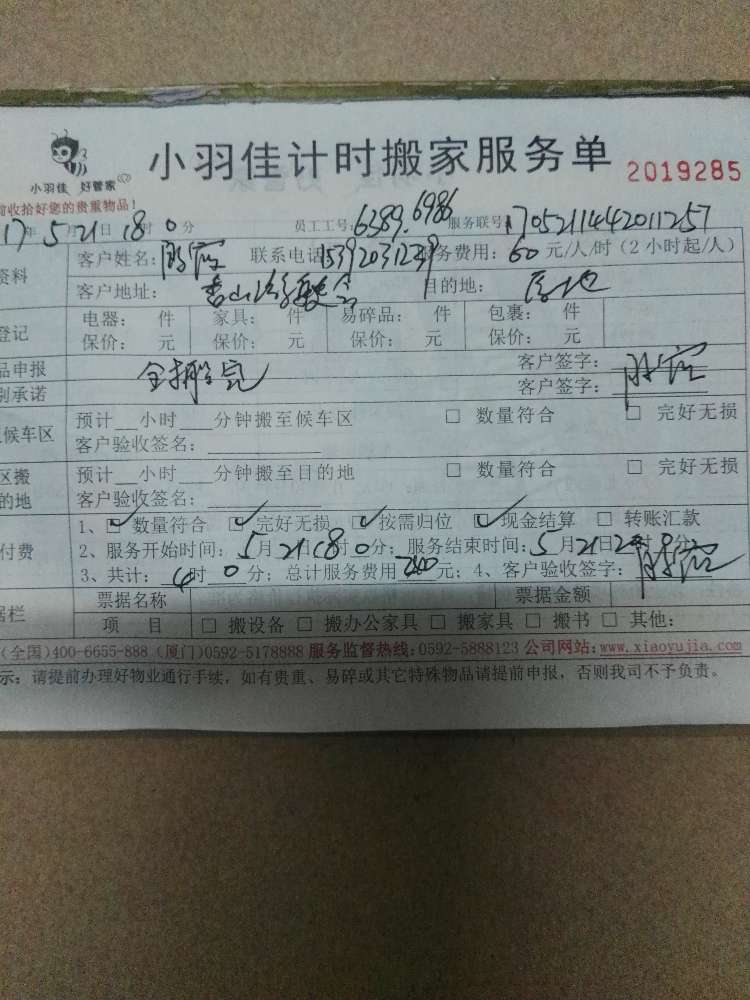 小羽佳计时搬家服务单 2019285
小羽佳 好管家
前收拾好您的贵重物品！
17年5月21日18时0分 员工工号:6389.6986 服务联号:1705211442011257
资料 客户姓名: 联系电话 服务费用: 60元/人/时(2小时起/人)
客户地址: 香山 目的地: 原地
登记 电器: 件 家具: 件 易碎品: 件 包裹: 件
保价: 元 保价: 元 保价: 元 保价: 元
品申报 客户签字:
别承诺 客户签字:
候车区 预计__小时___分钟搬至候车区 □ 数量符合 □ 完好无损
客户验收签名:
区搬 预计__小时___分钟搬至目的地 □ 数量符合 □ 完好无损
的地 客户验收签名:
付费 1、☑数量符合 ☑完好无损 ☑按需归位 ☑现金结算 □ 转账汇款
2、服务开始时间: 5月21日18时0分; 服务结束时间: 5月21日2 时0分
3、共计: 4时0分; 总计服务费用240元; 4、客户验收签字:
据栏 票据名称 票据金额
项 目 □ 搬设备 □ 搬办公家具 □ 搬家具 □ 搬书 □ 其他:
(全国)400-6655-888 (厦门)0592-5178888 服务监督热线:0592-5888123 公司网站:www.xiaoyujia.com
示: 请提前办理好物业通行手续，如有贵重、易碎或其它特殊物品请提前申报，否则我司不予负责。